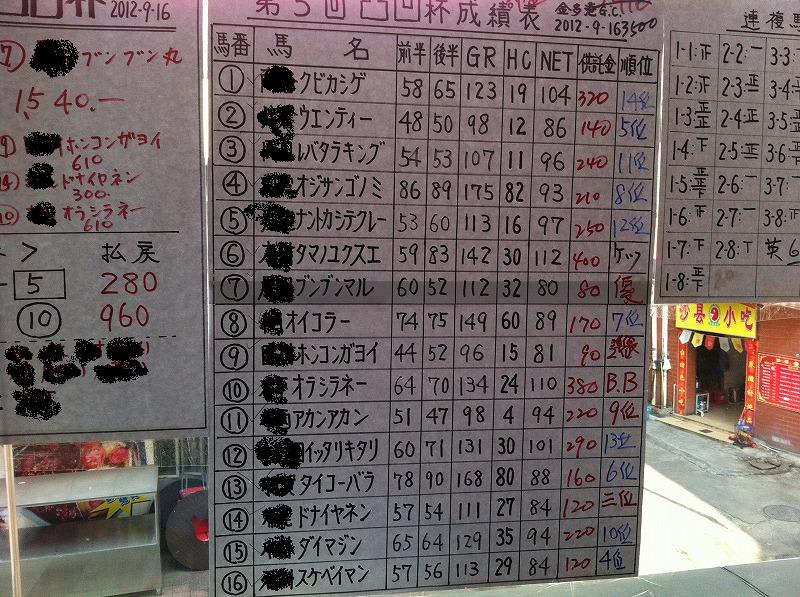 2012-9-16
⑦ ブンブン丸
1,540.-
ホンコンガヨイ
610
ドナイヤネン
300.-
⑩ オラシラネー
610
払戻
5 280
⑩ 960
第5回凸凹杯成績表
2012-9-16
馬番 馬名 前半 後半 GR HC NET 供託金 順位
① クビカシゲ 58 65 123 19 104 320 14位
② ウエンティー 48 50 98 12 86 140 5位
③ バタラキング 54 53 107 11 96 240 11位
④ オジサンゴノミ 86 89 175 82 93 210 8位
⑤ ナントカシテクレー 53 60 113 16 97 250 12位
⑥ タマノユクスエ 59 83 142 30 112 400 ケツ
⑦ ブンブンマル 60 52 112 32 80 80 優
⑧ オイコラー 74 75 149 60 89 170 7位
⑨ ホンコンガヨイ 44 52 96 15 81 90
⑩ オラシラネー 64 70 134 24 110 380 B.B
⑪ アカンアカン 51 47 98 4 94 220 9位
⑫ イッタリキタリ 60 71 131 30 101 290 13位
⑬ タイコーバラ 78 90 168 80 88 160 6位
⑭ ドナイヤネン 57 54 111 27 84 120 三位
⑮ ダイマジン 65 64 129 35 94 220 10位
⑯ スケベイマン 57 56 113 29 84 120 4位
連複馬
1-1:正 2-2:一 3-3:
1-2:正 2-3: 3-4:
1-3: 2-4:正 3-5:
1-4:下 2-5: 3-6:
1-5: 2-6:一 3-7:
1-6:正 2-7:一 3-8:
1-7:下 2-8:丁
1-8:
沙县小吃